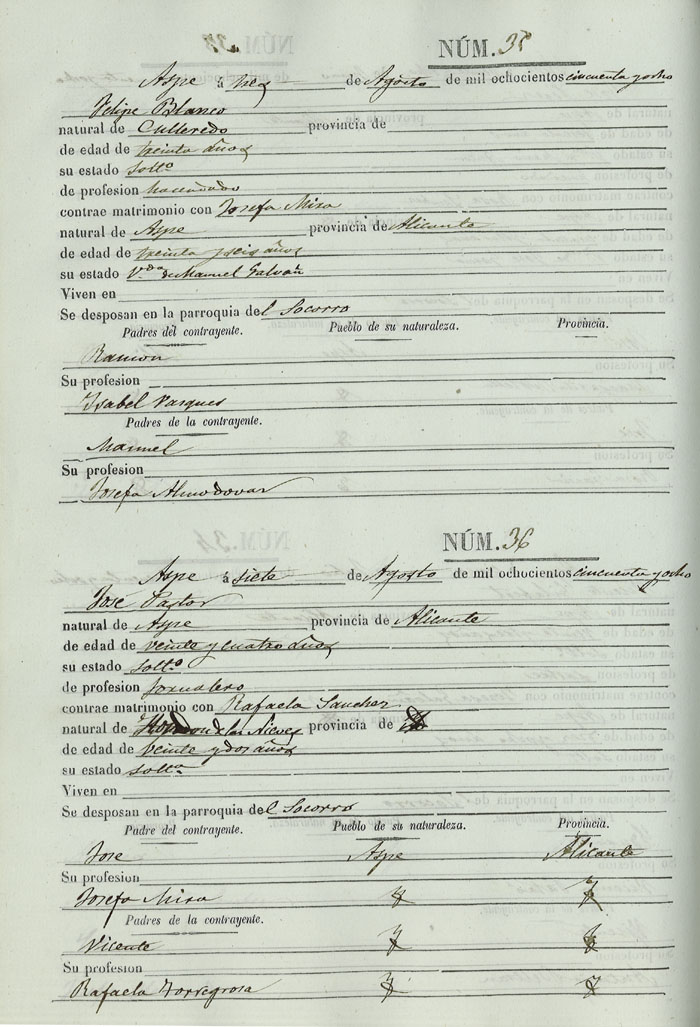 NÚM. 35
Aspe á tres de Agosto de mil ochocientos cincuenta y ocho
Felipe Blanco
natural de Culleredo provincia de
de edad de treinta años
su estado Soltº
de profesion hacendado
contrae matrimonio con Josefa Mira
natural de Aspe provincia de Alicante
de edad de treinta y seis años
su estado Vda de Manuel Galvañ
Viven en
Se desposan en la parroquia del Socorro
Padres del contrayente. Pueblo de su naturaleza. Provincia.
Ramon
Su profesion
Isabel Vasques
Padres de la contrayente.
Manuel
Su profesion
Josefa Almodovar
NÚM. 36
Aspe á siete de Agosto de mil ochocientos cincuenta y ocho
José Pastor
natural de Aspe provincia de Alicante
de edad de veinte y cuatro años
su estado Soltº
de profesion jornalero
contrae matrimonio con Rafaela Sanchez
natural de Hondon de las Nieves provincia de
de edad de veinte y dos años
su estado soltª
Viven en
Se desposan en la parroquia del Socorro
Padre del contrayente. Pueblo de su naturaleza. Provincia.
Jose Aspe Alicante
Su profesion
Josefa Mira
Padres de la contrayente.
Vicente
Su profesion
Rafaela Torregrosa